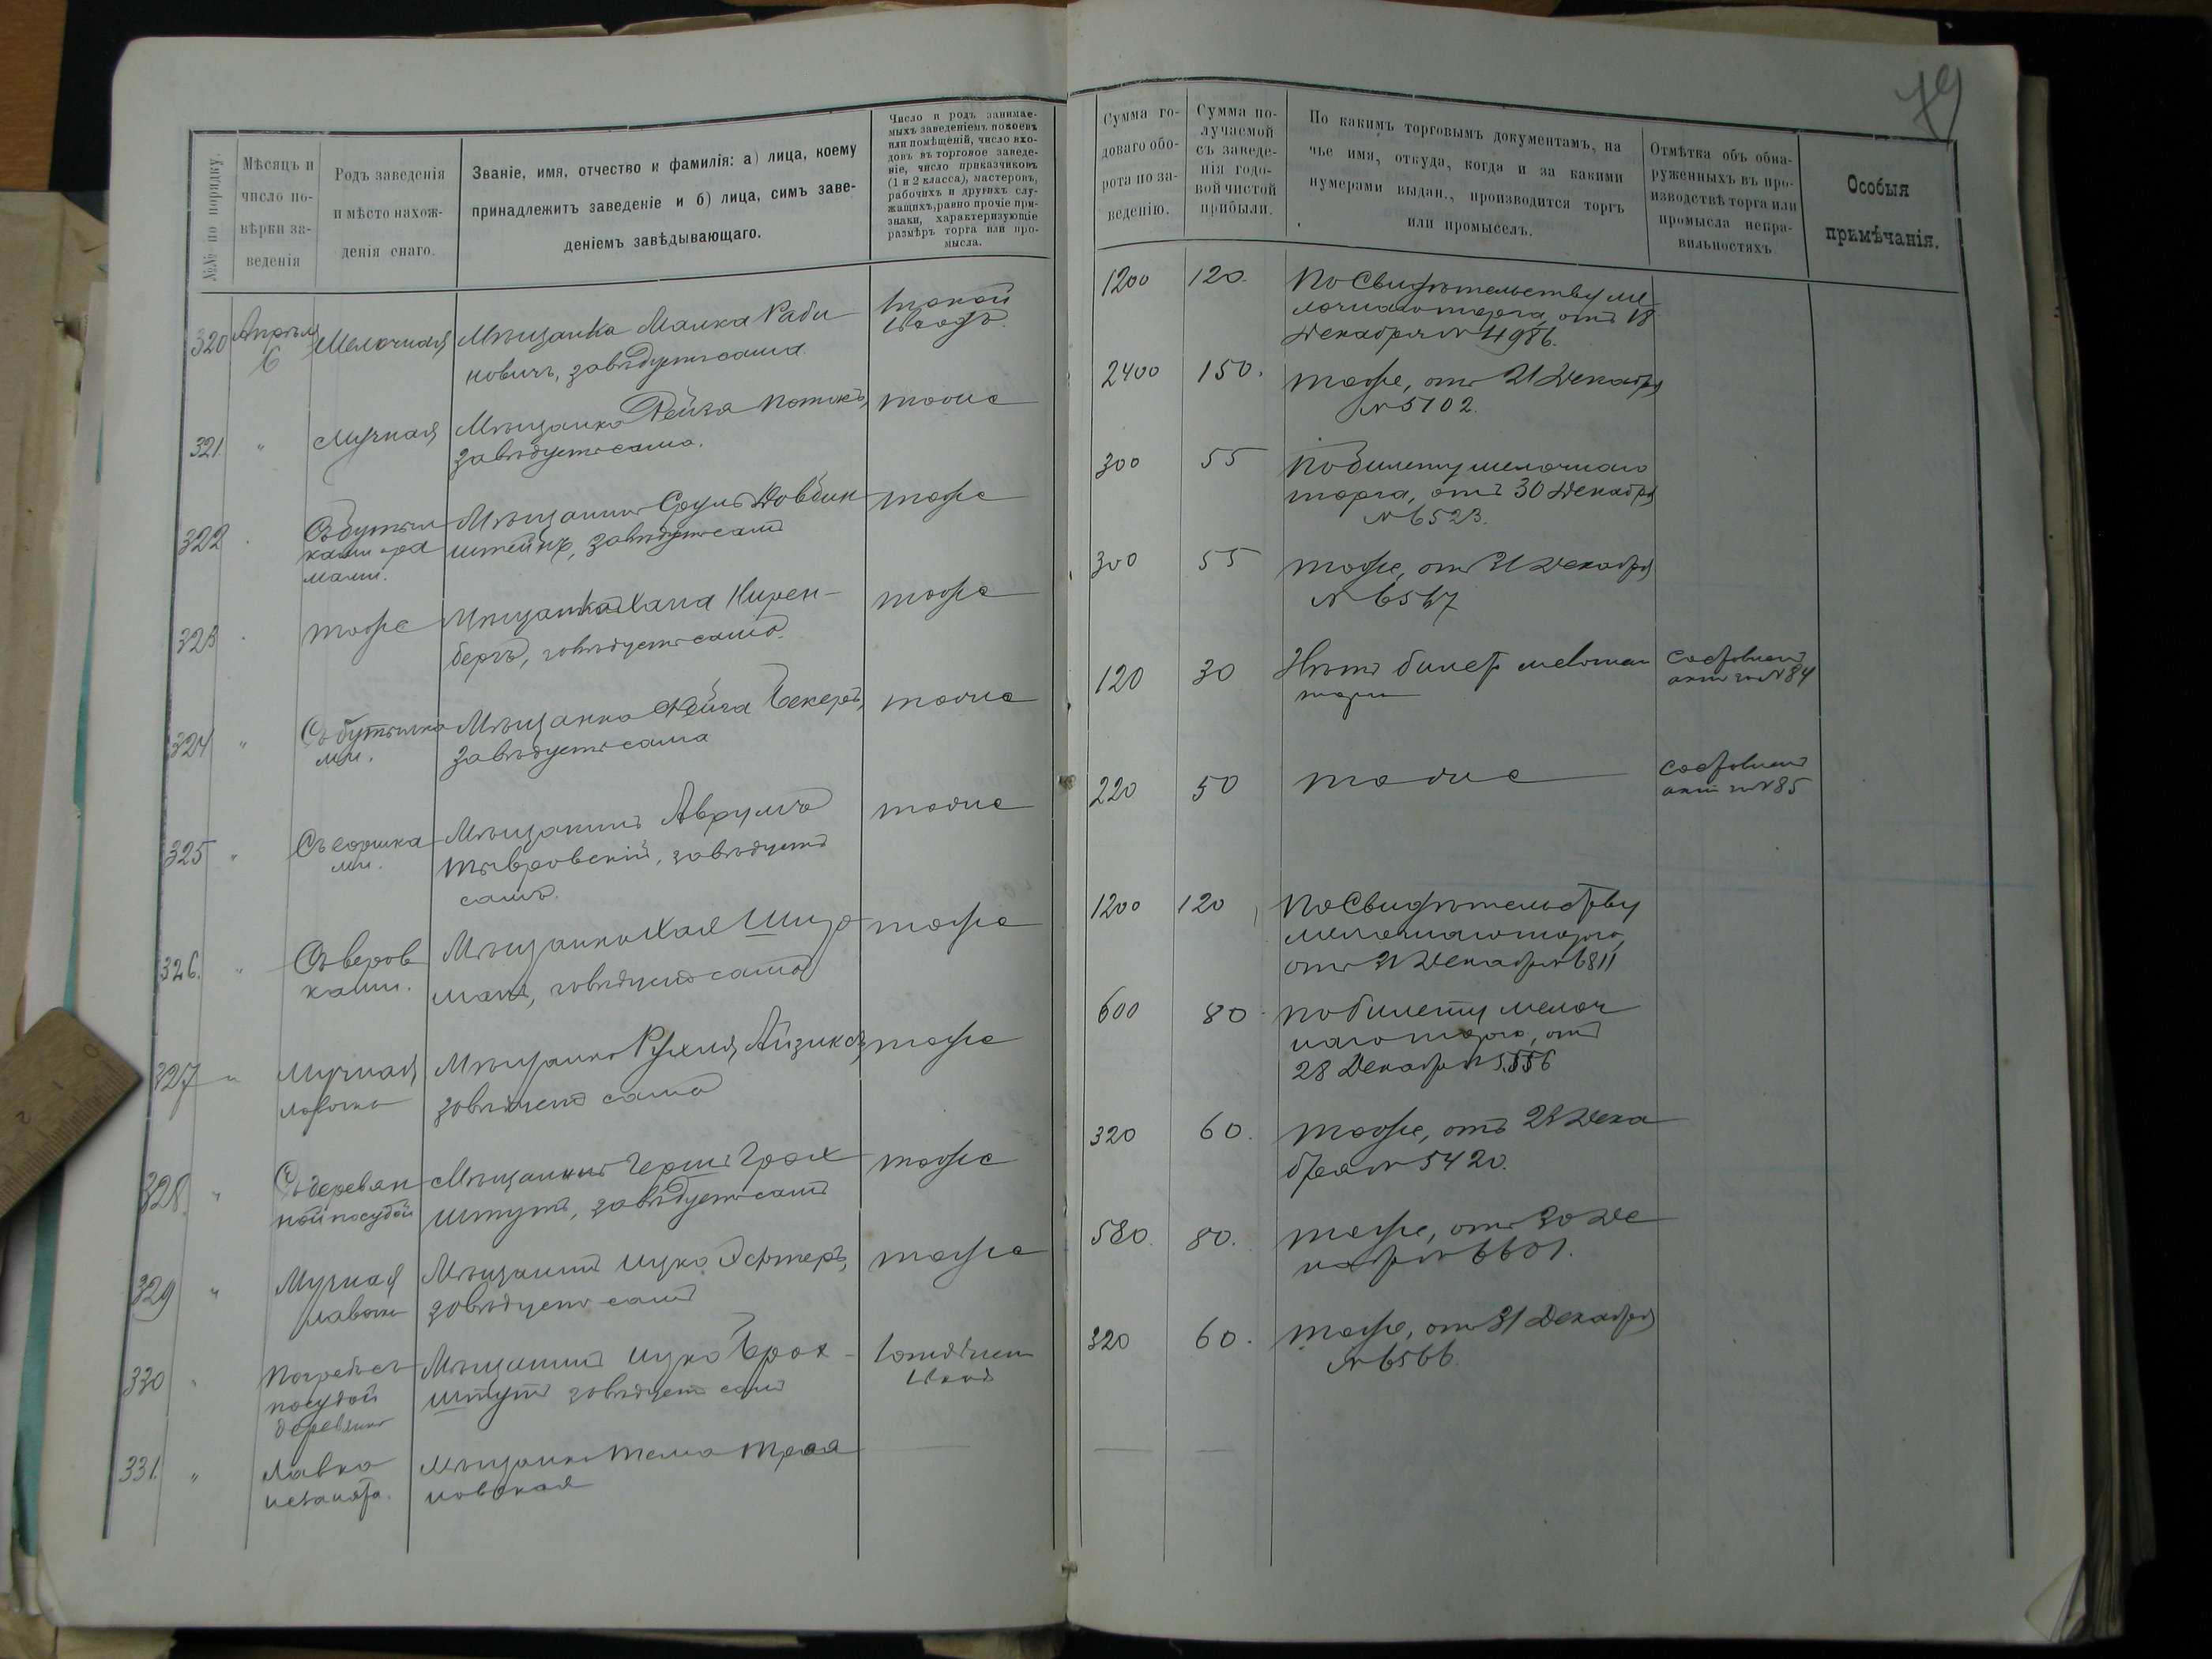 79
№№ по порядку.
Мѣсяцъ и
число по-
вѣрки за-
веденія
Родъ заведенія
и мѣсто нахож-
денія онаго.
Званіе, имя, отчество и фамилія: а) лица, коему
принадлежитъ заведеніе и б) лица, симъ заве-
деніемъ завѣдывающаго.
Число и родъ занимае-
мыхъ заведеніемъ покоевъ
или помѣщеній, число вхо-
довъ въ торговое заведе-
ніе, число приказчиковъ
(1 и 2 класса), мастеровъ,
рабочихъ и другихъ слу-
жащихъ, равно прочіе при-
знаки, характеризующіе
размѣръ торга или про-
мысла.
Сумма го-
доваго обо-
рота по за-
веденію.
Сумма по-
лучаемой
съ заведе-
нія годо-
вой чистой
прибыли.
По какимъ торговымъ документамъ, на
чье имя, откуда, когда и за какими
нумерами выдан., производится торгъ
или промыселъ.
Отмѣтка объ обна-
руженныхъ въ про-
изводствѣ торга или
промысла непра-
вильностяхъ.
Особыя
примѣчанія.
320 Апрѣля 6 Мелочная Мѣщанка Малка Раби
новичъ, завѣдуетъ сама.
1 покой
1 входъ.
1200 120. По Свидѣтельству ме
лочнаго торга, отъ 18
Декабря № 4986.
321. " Мучная Мѣщанка Фейга Потокъ, тоже
завѣдуетъ сама.
2400 150. тоже, отъ 21 Декабря
№ 5102.
322 Съ бутыл
ками
Мѣщанинъ Сруль Довбин тоже
штейнъ, завѣдуетъ самъ
300 55 По билету мелочнаго
торга, отъ 30 Декабря
№ 6523.
323 тоже Мѣщанка Хана Нирен- тоже
бергъ, завѣдуетъ сама.
300 55 тоже, отъ 31 Декабря
№ 6567
324 " Съ бутылка
ми.
Мѣщанка Фейга Бекеръ, тоже
завѣдуетъ сама
120 30 Нѣтъ билета мелочн
торга
Составленъ
актъ за № 84
325 " Съ горшка
ми.
Мѣщанинъ Аврумъ тоже
Тывровскій, завѣдуетъ
самъ.
220 50 тоже
Составленъ
актъ за № 85
326. " Съ верев
ками.
Мѣщанка Хая Шифр тоже
манъ, завѣдуетъ сама
1200 120 По Свидѣтельству
мелочнаго торга,
отъ 31 Декабря № 6811
327 " Мучная
лавочка
Мѣщанка Рухля Айзикъ, тоже
завѣдуетъ сама
600 80 по билету мелоч
наго торга, отъ
28 Декабря № 5556
328. " Съ деревян
ной посудой
Мѣщанинъ Гершъ Брох тоже
штутъ, завѣдуетъ самъ
320 60. тоже, отъ 28 Дека
бря № 5420.
329 " Мучная
лавочка
Мѣщанинъ Ицко Эстеръ, тоже
завѣдуетъ самъ
580. 80. тоже, отъ 30 Де
кабря № 6601.
330 Погребъ съ
посудой
деревянн
Мѣщанинъ Ицко Брох-
штутъ завѣдуетъ самъ
1 отдѣлен
1 входъ
320 60. тоже, отъ 31 Декабря
№ 6566.
331. " Лавка
незанята.
Мѣщанка Тема Троя
новская